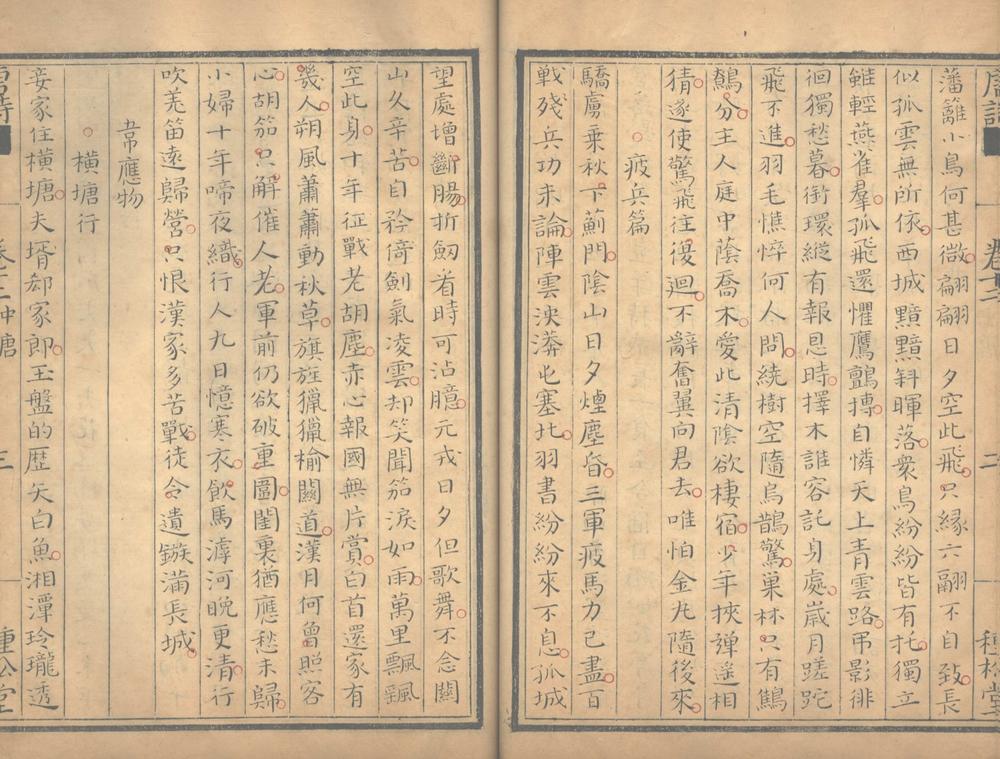 唐詩 卷十三 二 種松堂
藩籬小鳥何甚微翩翩日夕空此飛只緣六翮不自致長
似孤雲無所依西城黯黯斜暉落衆鳥紛紛皆有托獨立
雖輕燕雀羣孤飛還懼鷹鸇搏自憐天上青雲路弔影徘
徊獨愁暮銜環縱有報恩時擇木誰容託身處歲月蹉跎
飛不進羽毛憔悴何人問繞樹空隨烏鵲驚巢林只有鷦
鷯分主人庭中蔭喬木愛此清陰欲棲宿少年挾彈遥相
猜遂使驚飛往復迴不辭奮翼向君去唯怕金丸隨後來
疲兵篇
驕虜乗秋下薊門陰山日夕煙塵昏三軍疲馬力已盡百
戦殘兵功未論陣雲泱漭屯塞北羽書紛紛來不息孤城
望處增斷腸折劒看時可沾臆元戎日夕但歌舞不念關
山久辛苦自矜倚劍氣凌雲却笑聞笳淚如雨萬里飄飄
空此身十年征戰老胡塵赤心報國無片賞白首還家有
幾人朔風蕭蕭動秋草旗旌獵獵榆關道漢月何曾照客
心胡笳只解催人老軍前仍欲破重圍閨裏猶應愁未歸
小婦十年啼夜織行人九日憶寒衣飲馬滹河晚更清行
吹羌笛遠歸營只恨漢家多苦戰徒令遺鏃滿長城
韋應物
横塘行
妾家住横塘夫壻郄家郎玉盤的歷矢白魚湘潭玲瓏透